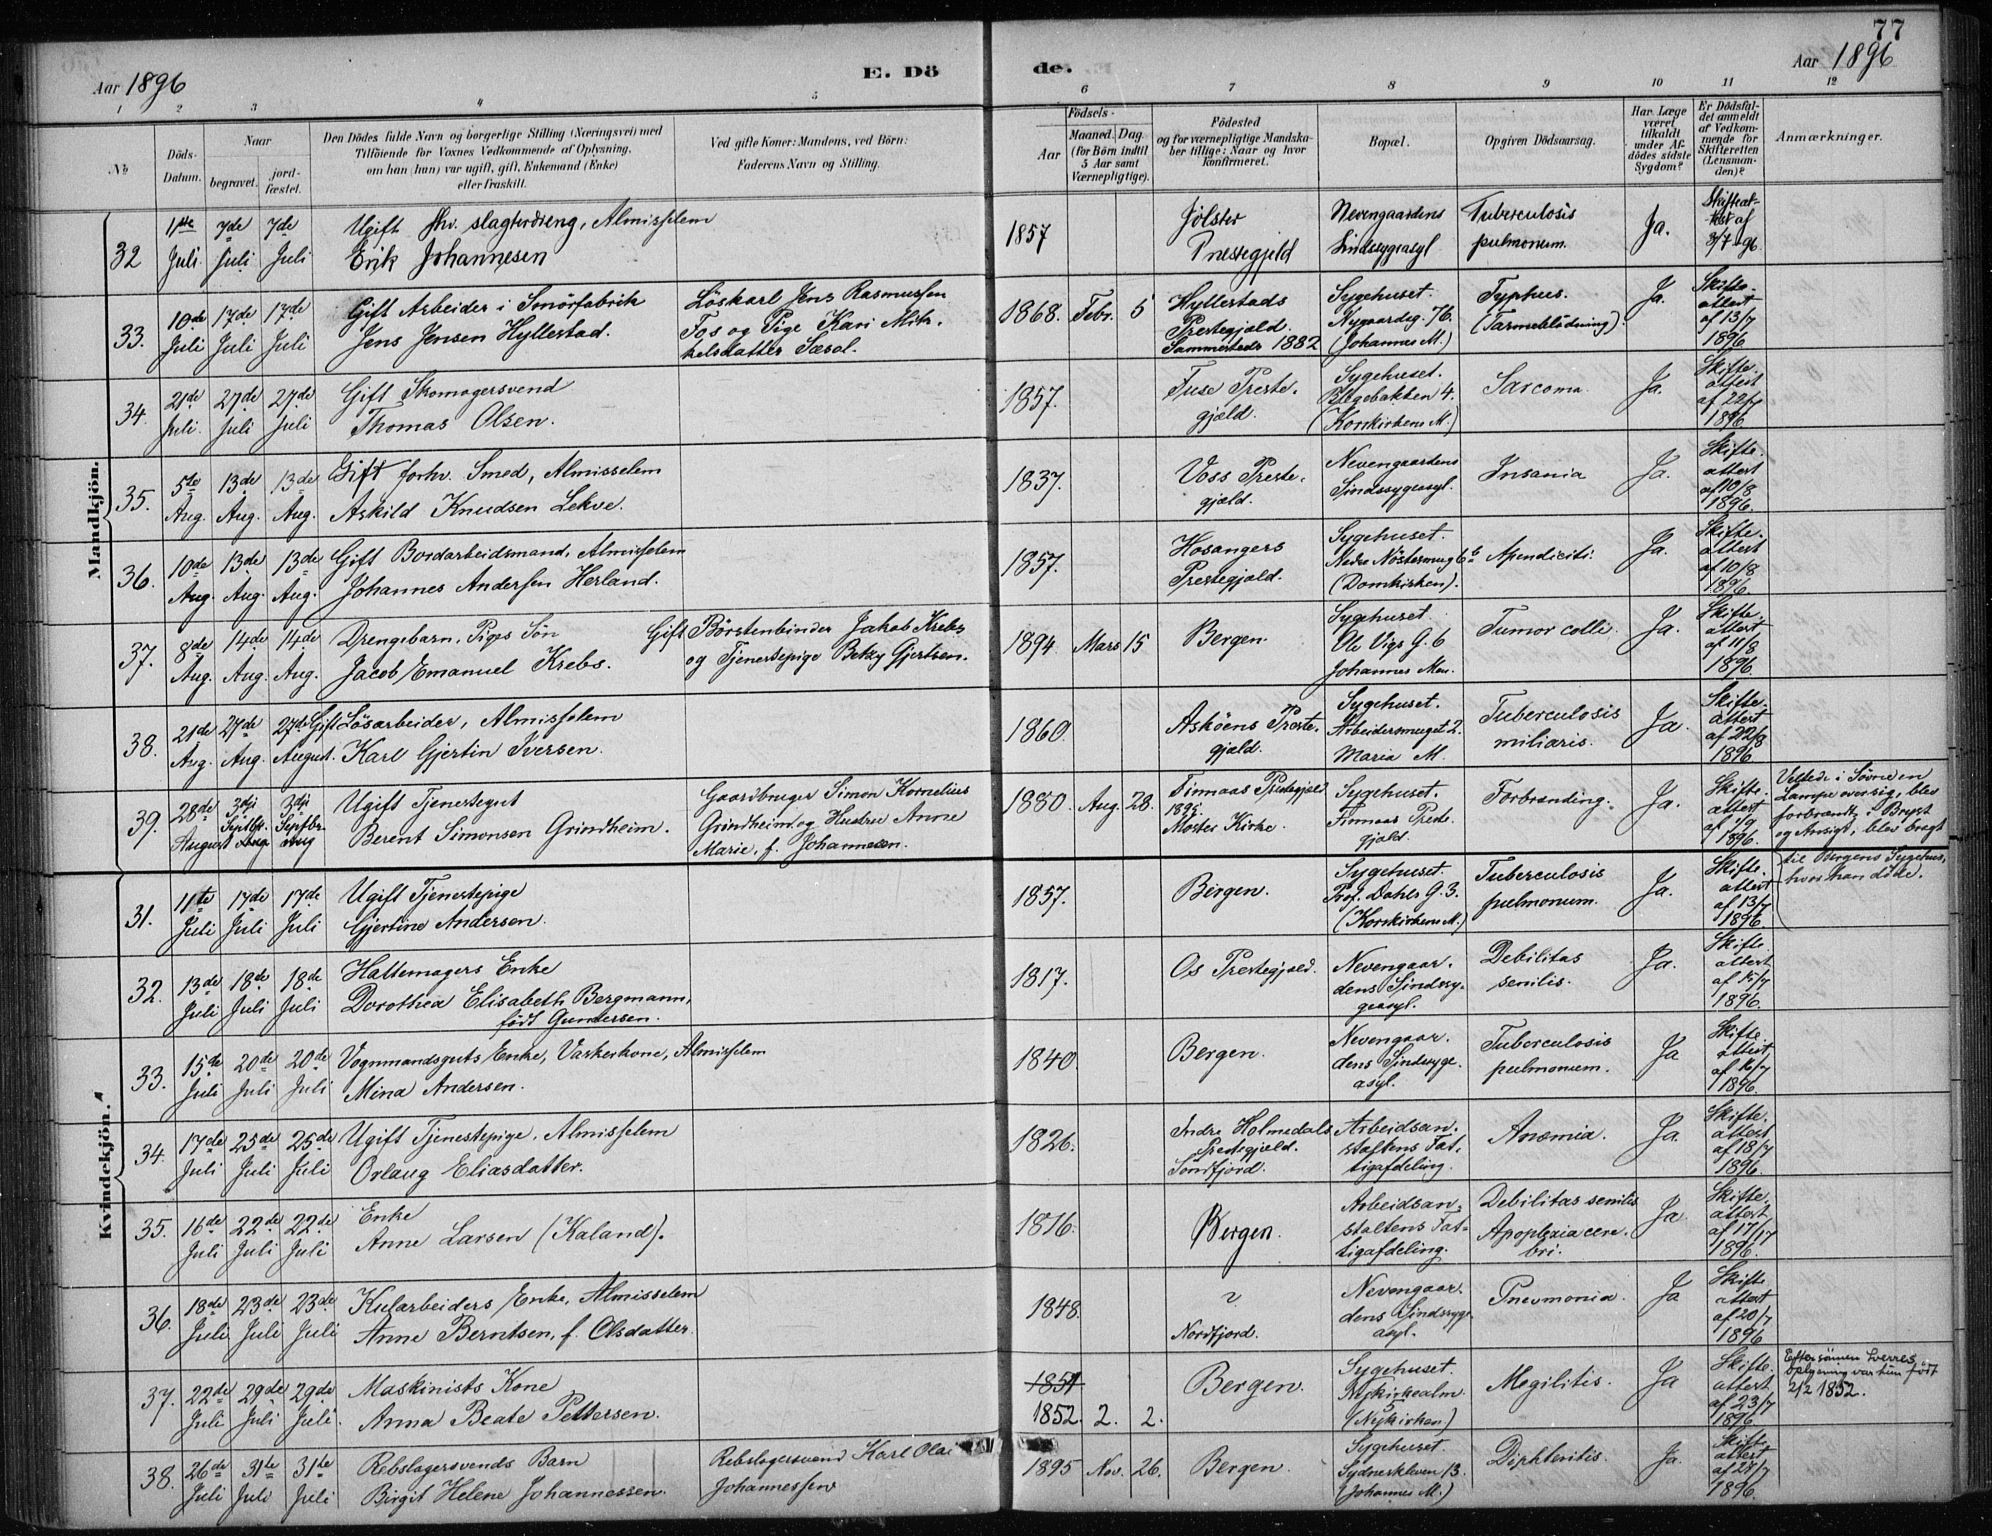 77
Aar 1896
E. Dö
de.
Aar 1896
1 2 3 4 5 6 7 8 9 10 11 12
No
Döds-
Datum.
Naar
begravet.
jord-
fæstet.
Den Dödes fulde Navn og borgerlige Stilling (Næringsvei) med
Tilföiende for Voxnes Vedkommende af Oplysning,
om han (hun) var ugift, gift, Enkemand (Enke)
eller fraskilt.
Ved gifte Koner: Mandens, ved Börn:
Faderens Navn og Stilling.
Födsels-
Aar
Maaned. Dag.
(for Börn indtil
5 Aar samt
Værnepligtige).
Födested
og for værnepligtige Mandska-
ber tillige: Naar og hvor
konfirmeret.
Bopæl.
Opgiven Dödsaarsag.
Har Læge
været
tilkaldt
under Af-
dødes sidste
Sygdom?
Er Dödsfal-
det anmeldt
af Vedkom-
mende for
Skifteretten
(Lensman-
den)?
Anmærkninger.
Mandkjön.
32
1ste Juli
7de Juli
7de Juli
Ugift fhv. slagterdreng, Almisselem
Erik Johannesen
1857
Jölster
Prestegjeld
Nevengaardens
Sindssygeasyl
Tuberculosis
pulmonum.
Ja.
Skifteat-
test af
3/7 96.
33.
10de Juli
17de Juli
17de Juli
Gift Arbeider i Smörfabrik
Jens Jensen Hyllestad.
Löskarl Jens Rasmussen
Fos og Pige Kari Mik-
kelsdatter Sæsol.
1868. Febr. 5
Hyllestads
Prestegjæld.
Sammesteds 1882
Sygehuset.
Nygaardsg. 76.
(Johannes M.)
Typhus.
(Tarmeblödning).
Ja.
Skifte-
attest
af 13/7
1896
34.
21de Juli.
27de Juli
27de Juli
Gift Skomagersvend
Thomas Olsen.
1857.
Fuse Preste-
gjæld.
Sygehuset.
Blegebakken 4.
(Korskirkens M.)
Sarcoma.
Ja.
Skifte-
attest
af 22/7
1896
35.
5te Aug.
13de Aug.
13de Aug.
Gift forhv. Smed, Almisselem
Askild Knudsen Lekve.
1837.
Voss Preste-
gjæld.
Nevengaardens
Sindssygeasyl.
Insania
Ja.
Skifte-
attest
af 10/8
1896.
36.
10de Aug.
13de Aug.
13de Aug.
Gift Bordarbeidsmand, Almisselem
Johannes Andersen Herland.
1857.
Hosangers
Prestegjæld.
Sygehuset.
Nedre Nöstersmug 6b
(Domkirken).
Apendiciti.
Ja.
Skifte-
attest
af 10/8
1896.
37.
8de Aug.
14de Aug.
14de Aug.
Drengebarn, Piges Sön
Jacob Emanuel Krebs.
Gift Börstenbinder Jakob Krebs
og Tjenestepige Betzy Gjertsen.
1894. Mars 15
Bergen.
Sygehuset.
Ole Vigs G. 6
Johannes Men.
Tumor colli.
Ja.
Skifte-
attest
af 11/8
1896.
38.
21de Aug.
27de Aug.
27de August.
Gift Lösarbeider, Almisselem
Karl Gjertin Iversen.
1860.
Asköens Preste-
gjæld.
Sygehuset.
Arbeidersmuget 2.
Maria M.
Tuberculosis
miliaris.
Ja.
Skifte-
attest
af 22/8
1896
39.
28de August
3dje Septbr.
3dje Septbr.
Ugift Tjenestegut
Berent Simonsen Grindheim.
Gaardbruger Simon Kornelius
Grindheim og Hustru Anne
Marie, f. Johannesen.
1880. Aug. 28.
Finnaas Prestegjæld
1895.
Moster Kirke.
Sygehuset.
Finnaas Preste-
gjæld.
Forbrænding.
Ja.
Skifte-
attest
af 1/9
1896.
Veltede i Søvne en
Lampe over sig, blev
forbrændt i Bryst
og Ansigt, blev bragt
til Bergens Sygehus,
hvor han døde.
Kvindekjön.
31.
11te Juli
17de Juli
17de Juli
Ugift Tjenestepige
Gjertine Andersen.
1857.
Bergen.
Sygehuset.
Prof. Dahls G. 3.
(Korskirkens M.)
Tuberculosis
pulmonum.
Ja.
Skifte-
attest
af 13/7
1896.
32.
13de Juli
18de Juli
18de Juli
Hattemagers Enke
Dorothea Elisabeth Bergmann,
födt Gundersen.
1817.
Os Prestegjæld.
Nevengaar-
dens Sindssy-
geasyl.
Debilitas
senilis.
Ja.
Skifte-
attest
af 15/7
1896.
33.
15de Juli
20de Juli
20de Juli
Vognmandsguts Enke, Vaskerkone, Almisselem
Mina Andersen.
1840.
Bergen.
Nevengaar-
dens Sindssyge-
asyl.
Tuberculosis
pulmonum.
Ja
Skifte-
attest
af 16/7
1896.
34.
17de Juli
25de Juli
25de Juli
Ugift Tjenestepige, Almisselem
Orlaug Eliasdatter.
1826.
Indre Holmedals
Prestegjæld.
Söndfjord.
Arbeidsan-
staltens Fat-
tigafdeling.
Anæmia.
Ja.
Skifte-
attest
af 18/7
1896.
35.
16de Juli
22de Juli
22de Juli
Enke
Anne Larsen (Kaland).
1816.
Bergen.
Arbeidsan-
staltens Fat-
tigafdeling.
Debilitas senilis
Apoplexia cere-
bri.
Ja.
Skifte-
attest
af 17/7
1896.
36.
18de Juli.
23de Juli
23de Juli
Kularbeiders Enke, Almisselem
Anne Berntsen, f. Olsdatter.
1848.
?
Nordfjord.
Nevengaar-
dens Sindssyge-
asyl.
Pneumonia.
Ja
Skifte-
attest
af 20/7
1896
37.
22de Juli
29de Juli
29de Juli.
Maskinists Kone
Anna Beate Pettersen.
1851
1852. 2. 2.
Bergen.
Sygehuset.
Nykirkealm.
5
(Nykirken)
Megilitis.
Ja
Skifte-
attest
af 23/7
1896.
Efter sönnen Sverres
oplysning var hun födt
2/2 1852.
38.
26de Juli
31te Juli
31te Juli
Rebslagersvends Barn
Birgit Helene Johannessen.
Rebslagersvend Karl Olai
Johannessen
1895 Nov. 26.
Bergen.
Sygehuset.
Sydnerskleven 13.
(Johannes M.)
Diphteritis.
Ja.
Skifte-
attest
af 28/7
1896.